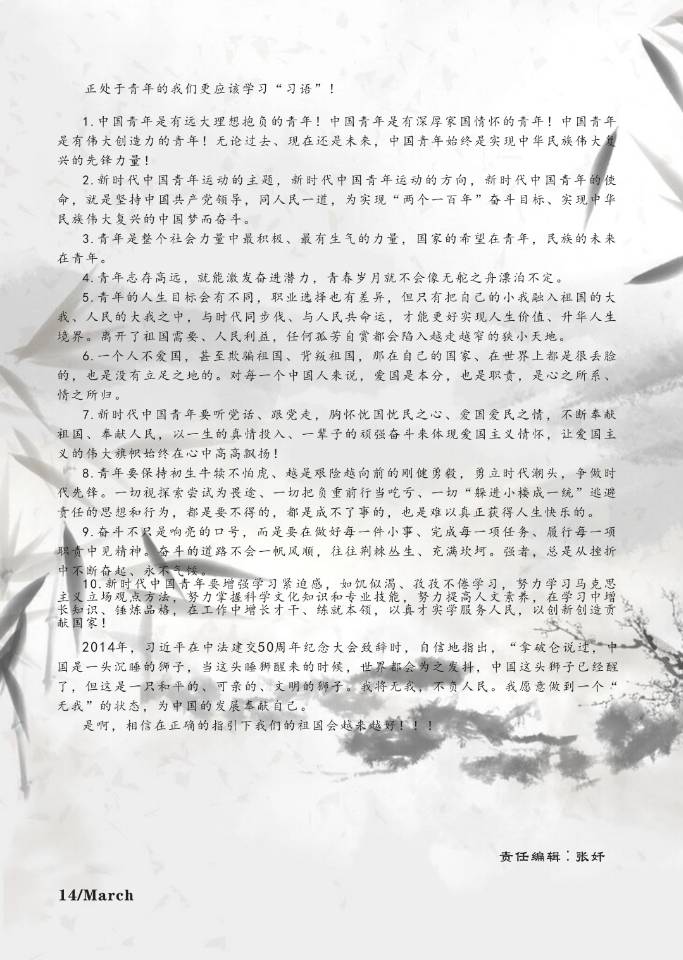 正处于青年的我们更应该学习“习语”！
1.中国青年是有远大理想抱负的青年！中国青年是有深厚家国情怀的青年！中国青年
是有伟大创造力的青年！无论过去、现在还是未来，中国青年始终是实现中华民族伟大复
兴的先锋力量！
2.新时代中国青年运动的主题，新时代中国青年运动的方向，新时代中国青年的使
命，就是坚持中国共产党领导，同人民一道，为实现“两个一百年”奋斗目标、实现中华
民族伟大复兴的中国梦而奋斗。
3.青年是整个社会力量中最积极、最有生气的力量，国家的希望在青年，民族的未来
在青年。
4.青年志存高远，就能激发奋进潜力，青春岁月就不会像无舵之舟漂泊不定。
5.青年的人生目标会有不同，职业选择也有差异，但只有把自己的小我融入祖国的大
我、人民的大我之中，与时代同步伐、与人民共命运，才能更好实现人生价值、升华人生
境界。离开了祖国需要、人民利益，任何孤芳自赏都会陷入越走越窄的狭小天地。
6.一个人不爱国，甚至欺骗祖国、背叛祖国，那在自己的国家、在世界上都是很丢脸
的，也是没有立足之地的。对每一个中国人来说，爱国是本分，也是职责，是心之所系、
情之所归。
7.新时代中国青年要听党话、跟党走，胸怀忧国忧民之心、爱国爱民之情，不断奉献
祖国、奉献人民，以一生的真情投入、一辈子的顽强奋斗来体现爱国主义情怀，让爱国主
义的伟大旗帜始终在心中高高飘扬！
8.青年要保持初生牛犊不怕虎、越是艰险越向前的刚健勇毅，勇立时代潮头，争做时
代先锋。一切视探索尝试为畏途、一切把负重前行当吃亏、一切“躲进小楼成一统”逃避
责任的思想和行为，都是要不得的，都是成不了事的，也是难以真正获得人生快乐的。
9.奋斗不只是响亮的口号，而是要在做好每一件小事、完成每一项任务、履行每一项
职责中见精神。奋斗的道路不会一帆风顺，往往荆棘丛生、充满坎坷。强者，总是从挫折
中不断奋起、永不气馁。
10.新时代中国青年要增强学习紧迫感，如饥似渴、孜孜不倦学习，努力学习马克思
主义立场观点方法，努力掌握科学文化知识和专业技能，努力提高人文素养，在学习中增
长知识、锤炼品格，在工作中增长才干、练就本领，以真才实学服务人民，以创新创造贡
献国家！
2014年，习近平在中法建交50周年纪念大会致辞时，自信地指出，“拿破仑说过，中
国是一头沉睡的狮子，当这头睡狮醒来的时候，世界都会为之发抖，中国这头狮子已经醒
了，但这是一只和平的、可亲的、文明的狮子。我将无我，不负人民。我愿意做到一个“
无我”的状态，为中国的发展奉献自己。
是啊，相信在正确的指引下我们的祖国会越来越好！！！
责任编辑：张妍
14/March